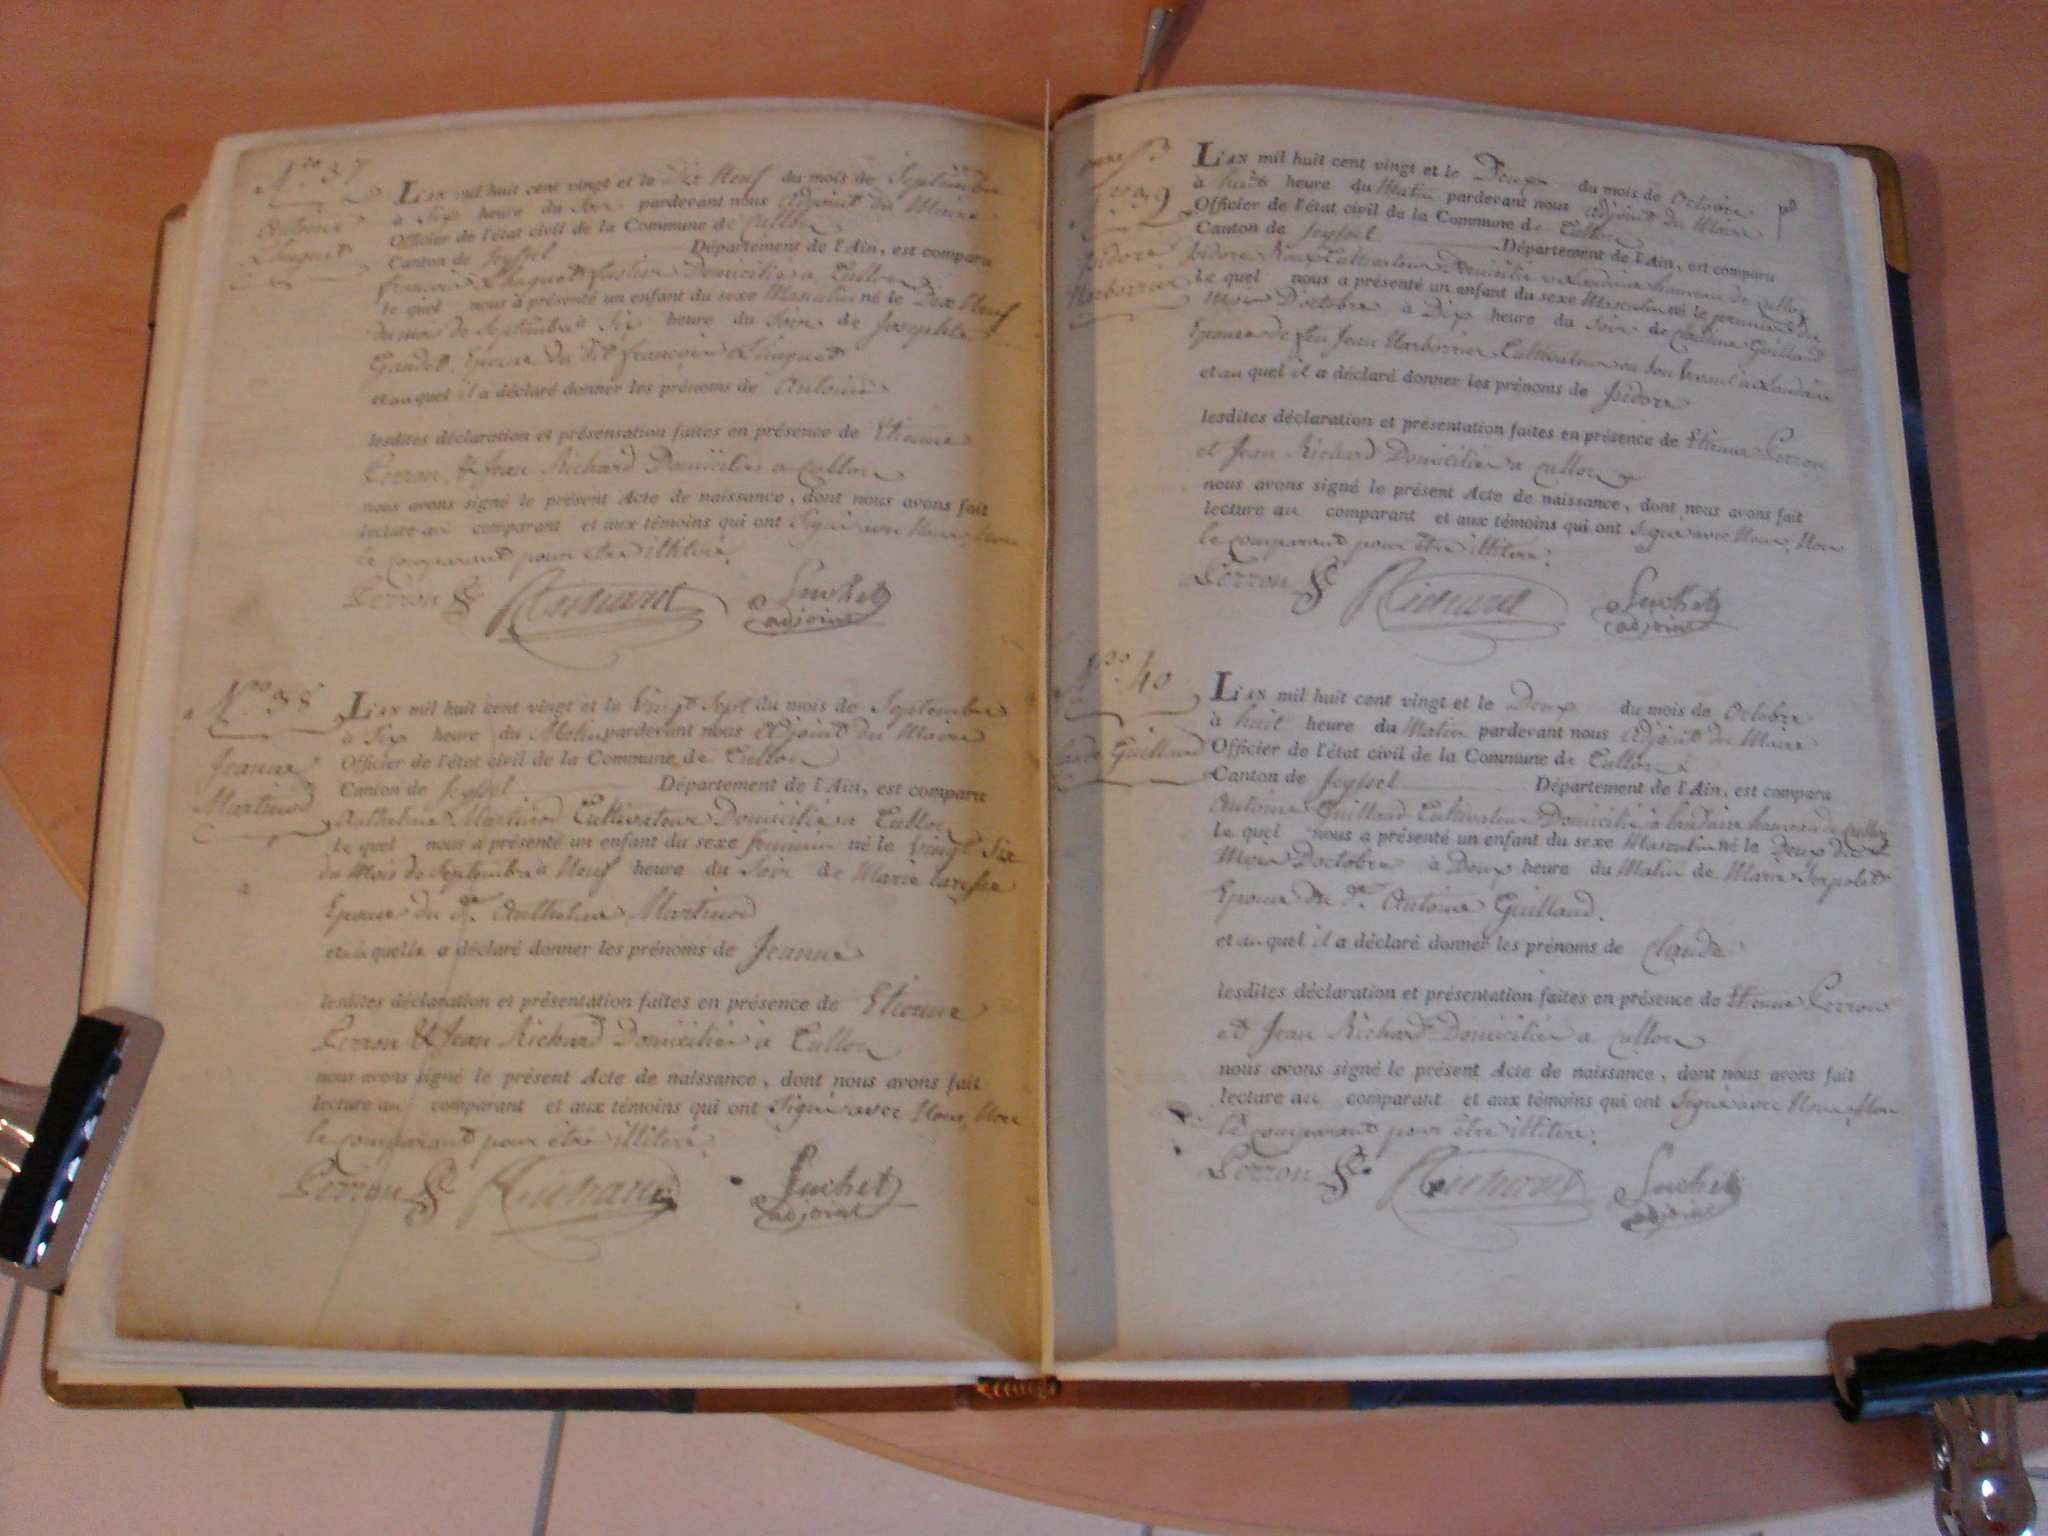 N.ro 37
Antoine
Lhuguet
L'an mil huit cent vingt et le Dix Neuf du mois de Septembre
à Six heure du Soir pardevant nous Adjoint du Maire
Officier de l'état civil de la Commune de Cullon
Canton de Seyssel Département de l'Ain, est comparu
françois Domicilié a Cullon
le quel nous à présenté un enfant du sexe Masculin né le Dix Neuf
du mois de Septembre à Six heure du Soir de Josephte
Gandet Epouse du dit françois Lhuguet
et au quel il a déclaré donner les prénoms de Antoine
lesdites déclaration et présensation faites en présence de Etienne
Perron & Jean Richard Domiciliés a Cullon
nous avons signé le présent Acte de naissance, dont nous avons fait
lecture au comparant et aux témoins qui ont Signé avec Nous, Non
le comparant pour être illitéré.
Perron Richard Luchet
adjoint
N.ro 38
Jeanne
Martinod
L'an mil huit cent vingt et le Vingt Sept du mois de Septembre
à Six heure du Matin pardevant nous Adjoint du Maire
Officier de l'état civil de la Commune de Cullon
Canton de Seyssel Département de l'Ain, est comparu
Anthelme Martinod Cultivateur Domicilié a Cullon
le quel nous a présenté un enfant du sexe feminin né le Vingt Six
du Mois de Septembre à Neuf heure du Soir de Marie
Epouse du d.t Anthelme Martinod
et à la quelle a déclaré donner les prénoms de Jeanne
lesdites déclaration et présentation faites en présence de Etienne
Perron & Jean Richard Domiciliés à Cullon
nous avons signé le présent Acte de naissance, dont nous avons fait
lecture au comparant et aux témoins qui ont Signé avec Nous, Non
le comparant pour être illitéré.
Perron Richard Luchet
adjoint
N.ro 39
Isidore
Marborrier
L'an mil huit cent vingt et le Deux du mois de Octobre
à huit heure du Matin pardevant nous Adjoint du Maire
Officier de l'état civil de la Commune de Cullon
Canton de Seyssel Département de l'Ain, est comparu
Isidore Roux Cultivateur Domicilié a Landaize hameau de Cullon
le quel nous a présenté un enfant du sexe Masculin né le premier du
Mois D'octobre à Dix heure du Soir de Claudine Guilland
Epouse de feu Jean Marborrier Cultivateur en Son vivant a Landaize
et au quel il a déclaré donner les prénoms de Isidore
lesdites déclaration et présentation faites en présence de Etienne Perron
et Jean Richard Domiciliés a Cullon
nous avons signé le présent Acte de naissance, dont nous avons fait
lecture au comparant et aux témoins qui ont Signé avec Nous, Non
le comparant pour être illitéré.
Perron Richard Luchet
adjoint
N.ro 40
Claude Guilland
L'an mil huit cent vingt et le Deux du mois de Octobre
à huit heure du Matin pardevant nous Adjoint du Maire
Officier de l'état civil de la Commune de Cullon
Canton de Seyssel Département de l'Ain, est comparu
Antoine Guilland Cultivateur Domicilié à landaize hameau de Cullon
le quel nous a présenté un enfant du sexe Masculin né le Deux du
Mois D'octobre à Deux heure du Matin de Marie Serpolet
Epouse du d.t Antoine Guilland.
et au quel il a déclaré donner les prénoms de Claude
lesdites déclaration et présentation faites en présence de Etienne Perron
et Jean Richard Domiciliés a Cullon
nous avons signé le présent Acte de naissance, dont nous avons fait
lecture au comparant et aux témoins qui ont Signé avec Nous, Non
le comparant pour être illitéré.
Perron Richard Luchet
adjoint